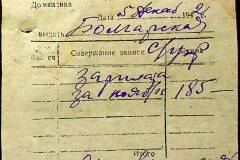 Домановка
Дата 5 Декаб 194 2 г.
выдать Болгарской
бал. сч Содержание записи Сумма
Зарплата
за ноябрь 185 —
Итого